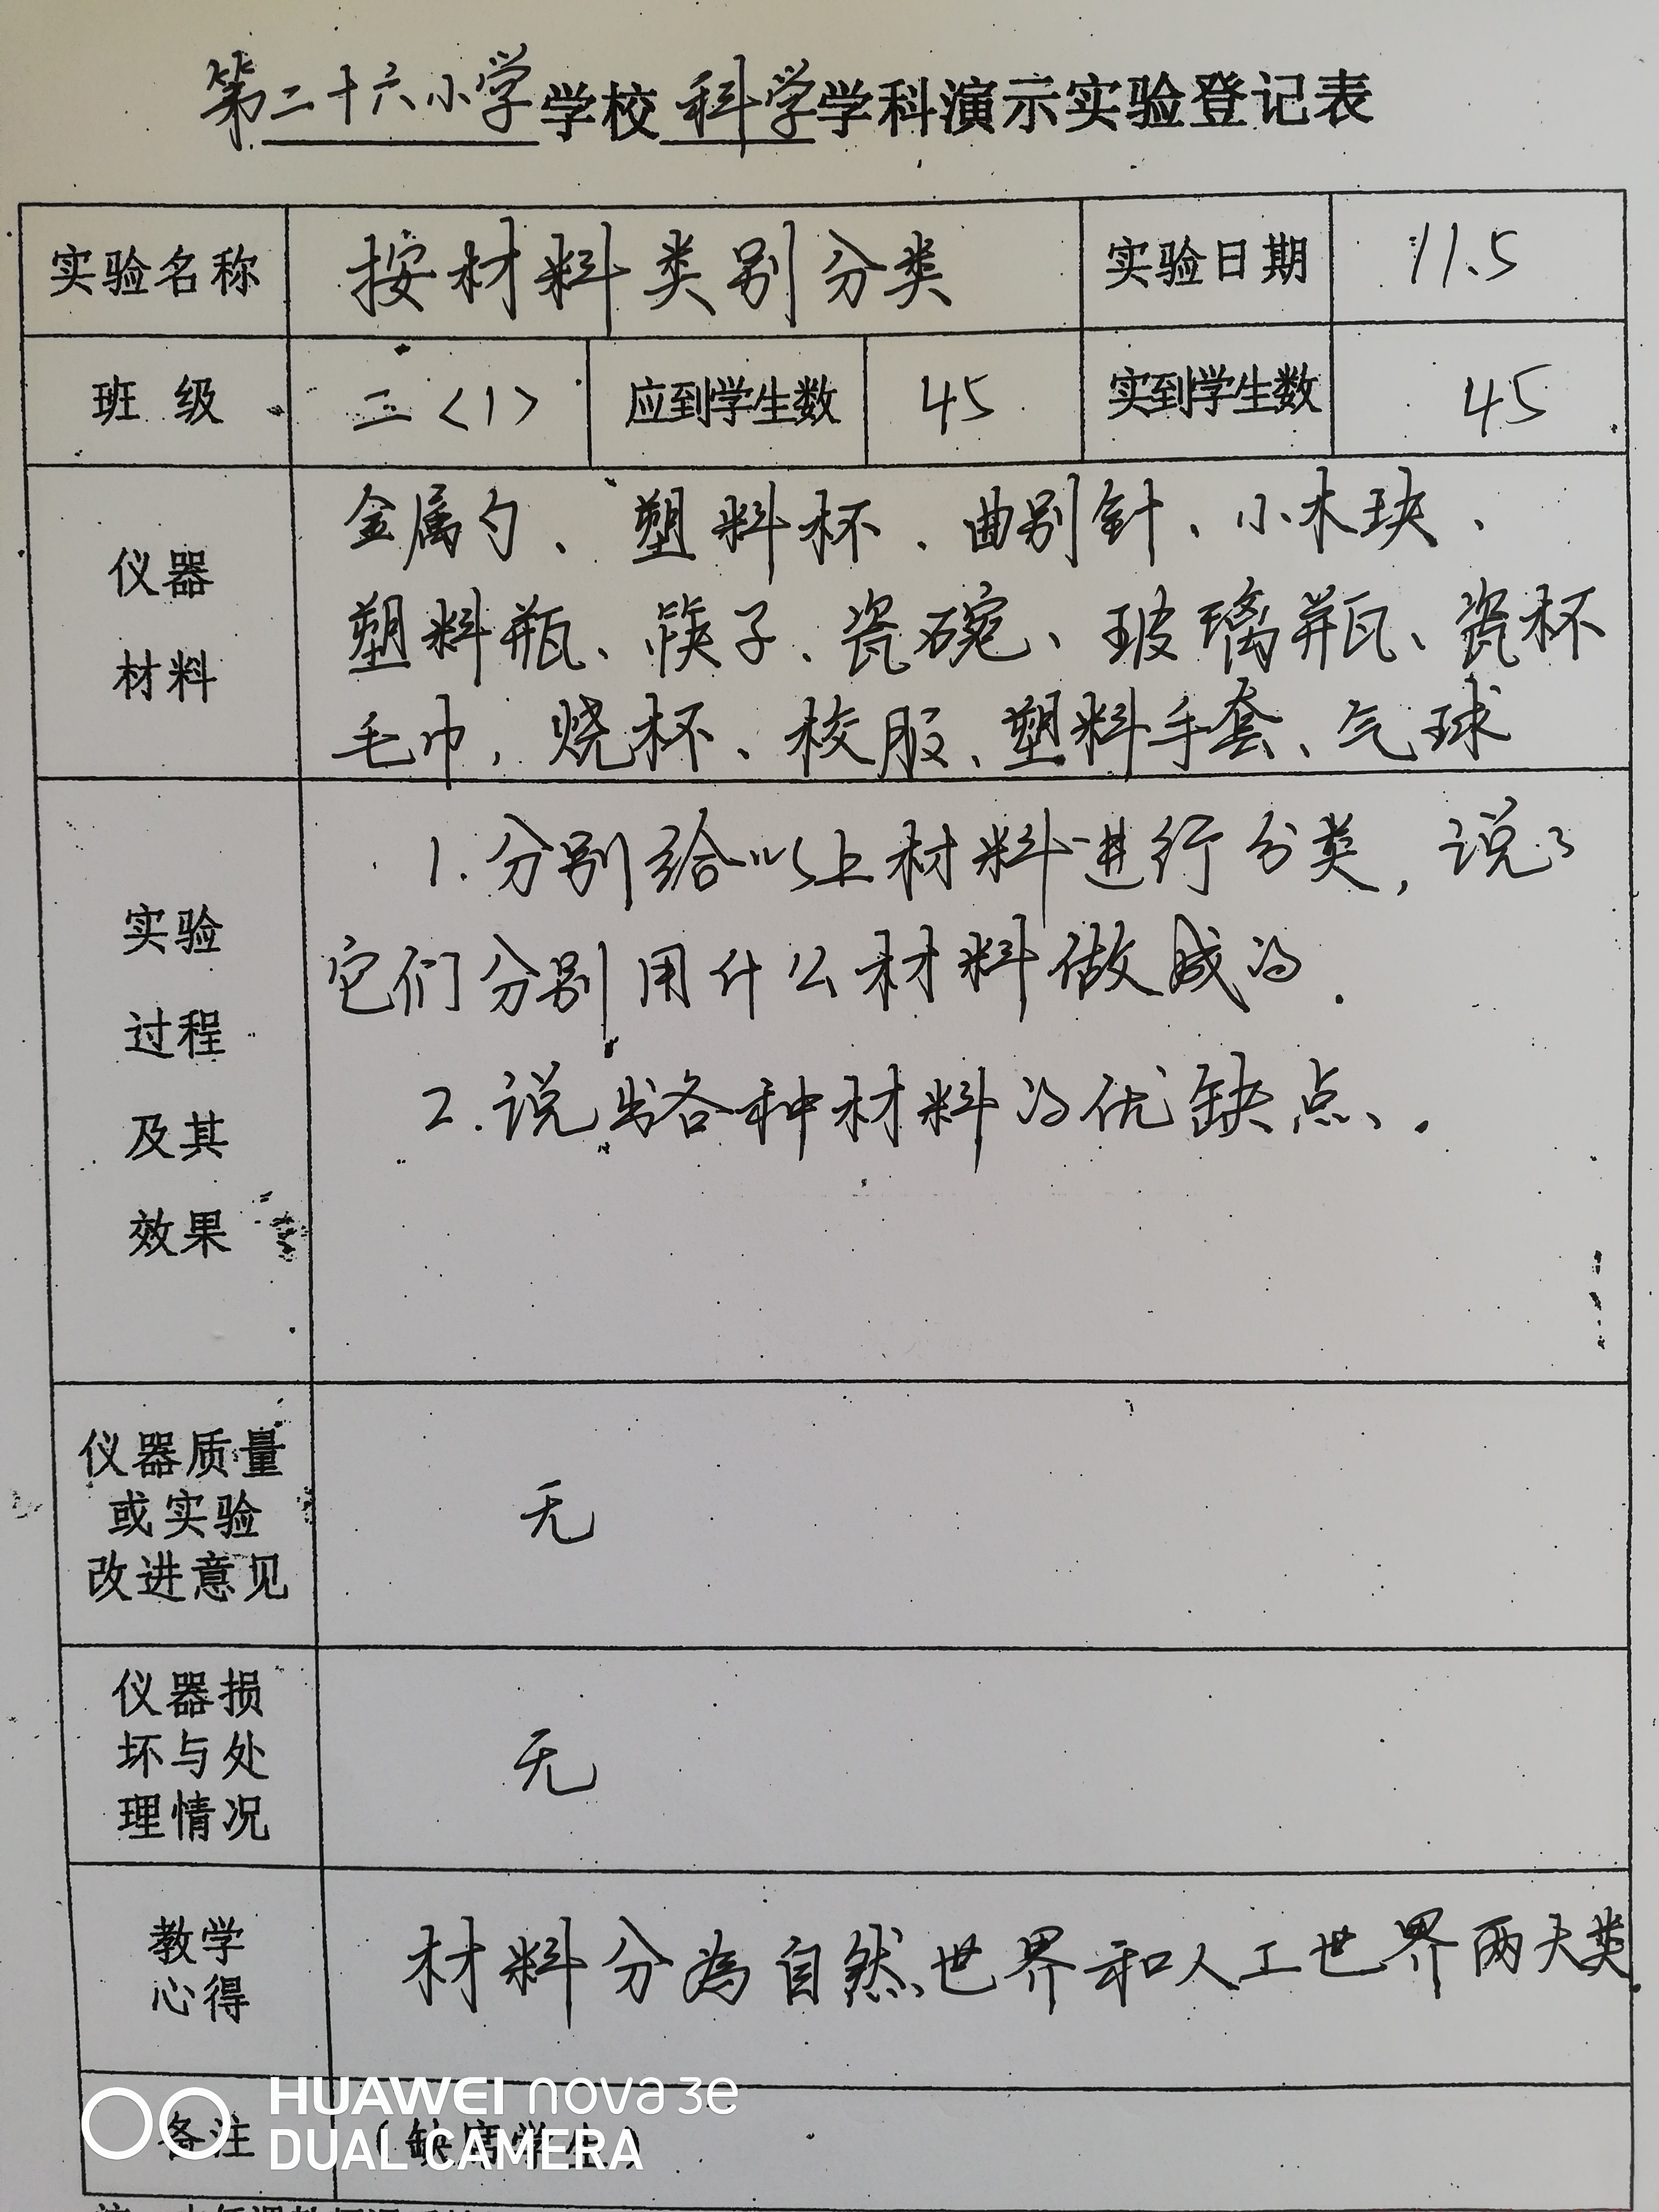 第二十六小学学校科学学科演示实验登记表
实验名称 按材料类别分类 实验日期 11.5
班级 二<1> 应到学生数 45 实到学生数 45
仪器
材料
金属勺、塑料杯、曲别针、小木块、
塑料瓶、筷子、瓷碗、玻璃瓶、瓷杯
毛巾，烧杯、校服、塑料手套、气球
实验
过程
及其
效果
1.分别给以上材料进行分类，说了
它们分别用什么材料做成的.
2.说出各种材料的优缺点、.
仪器质量
或实验
改进意见
无
仪器损
坏与处
理情况
无
教学
心得
材料分为自然世界和人工世界两大类.
备注 (缺席学生)
HUAWEI nova 3e
DUAL CAMERA